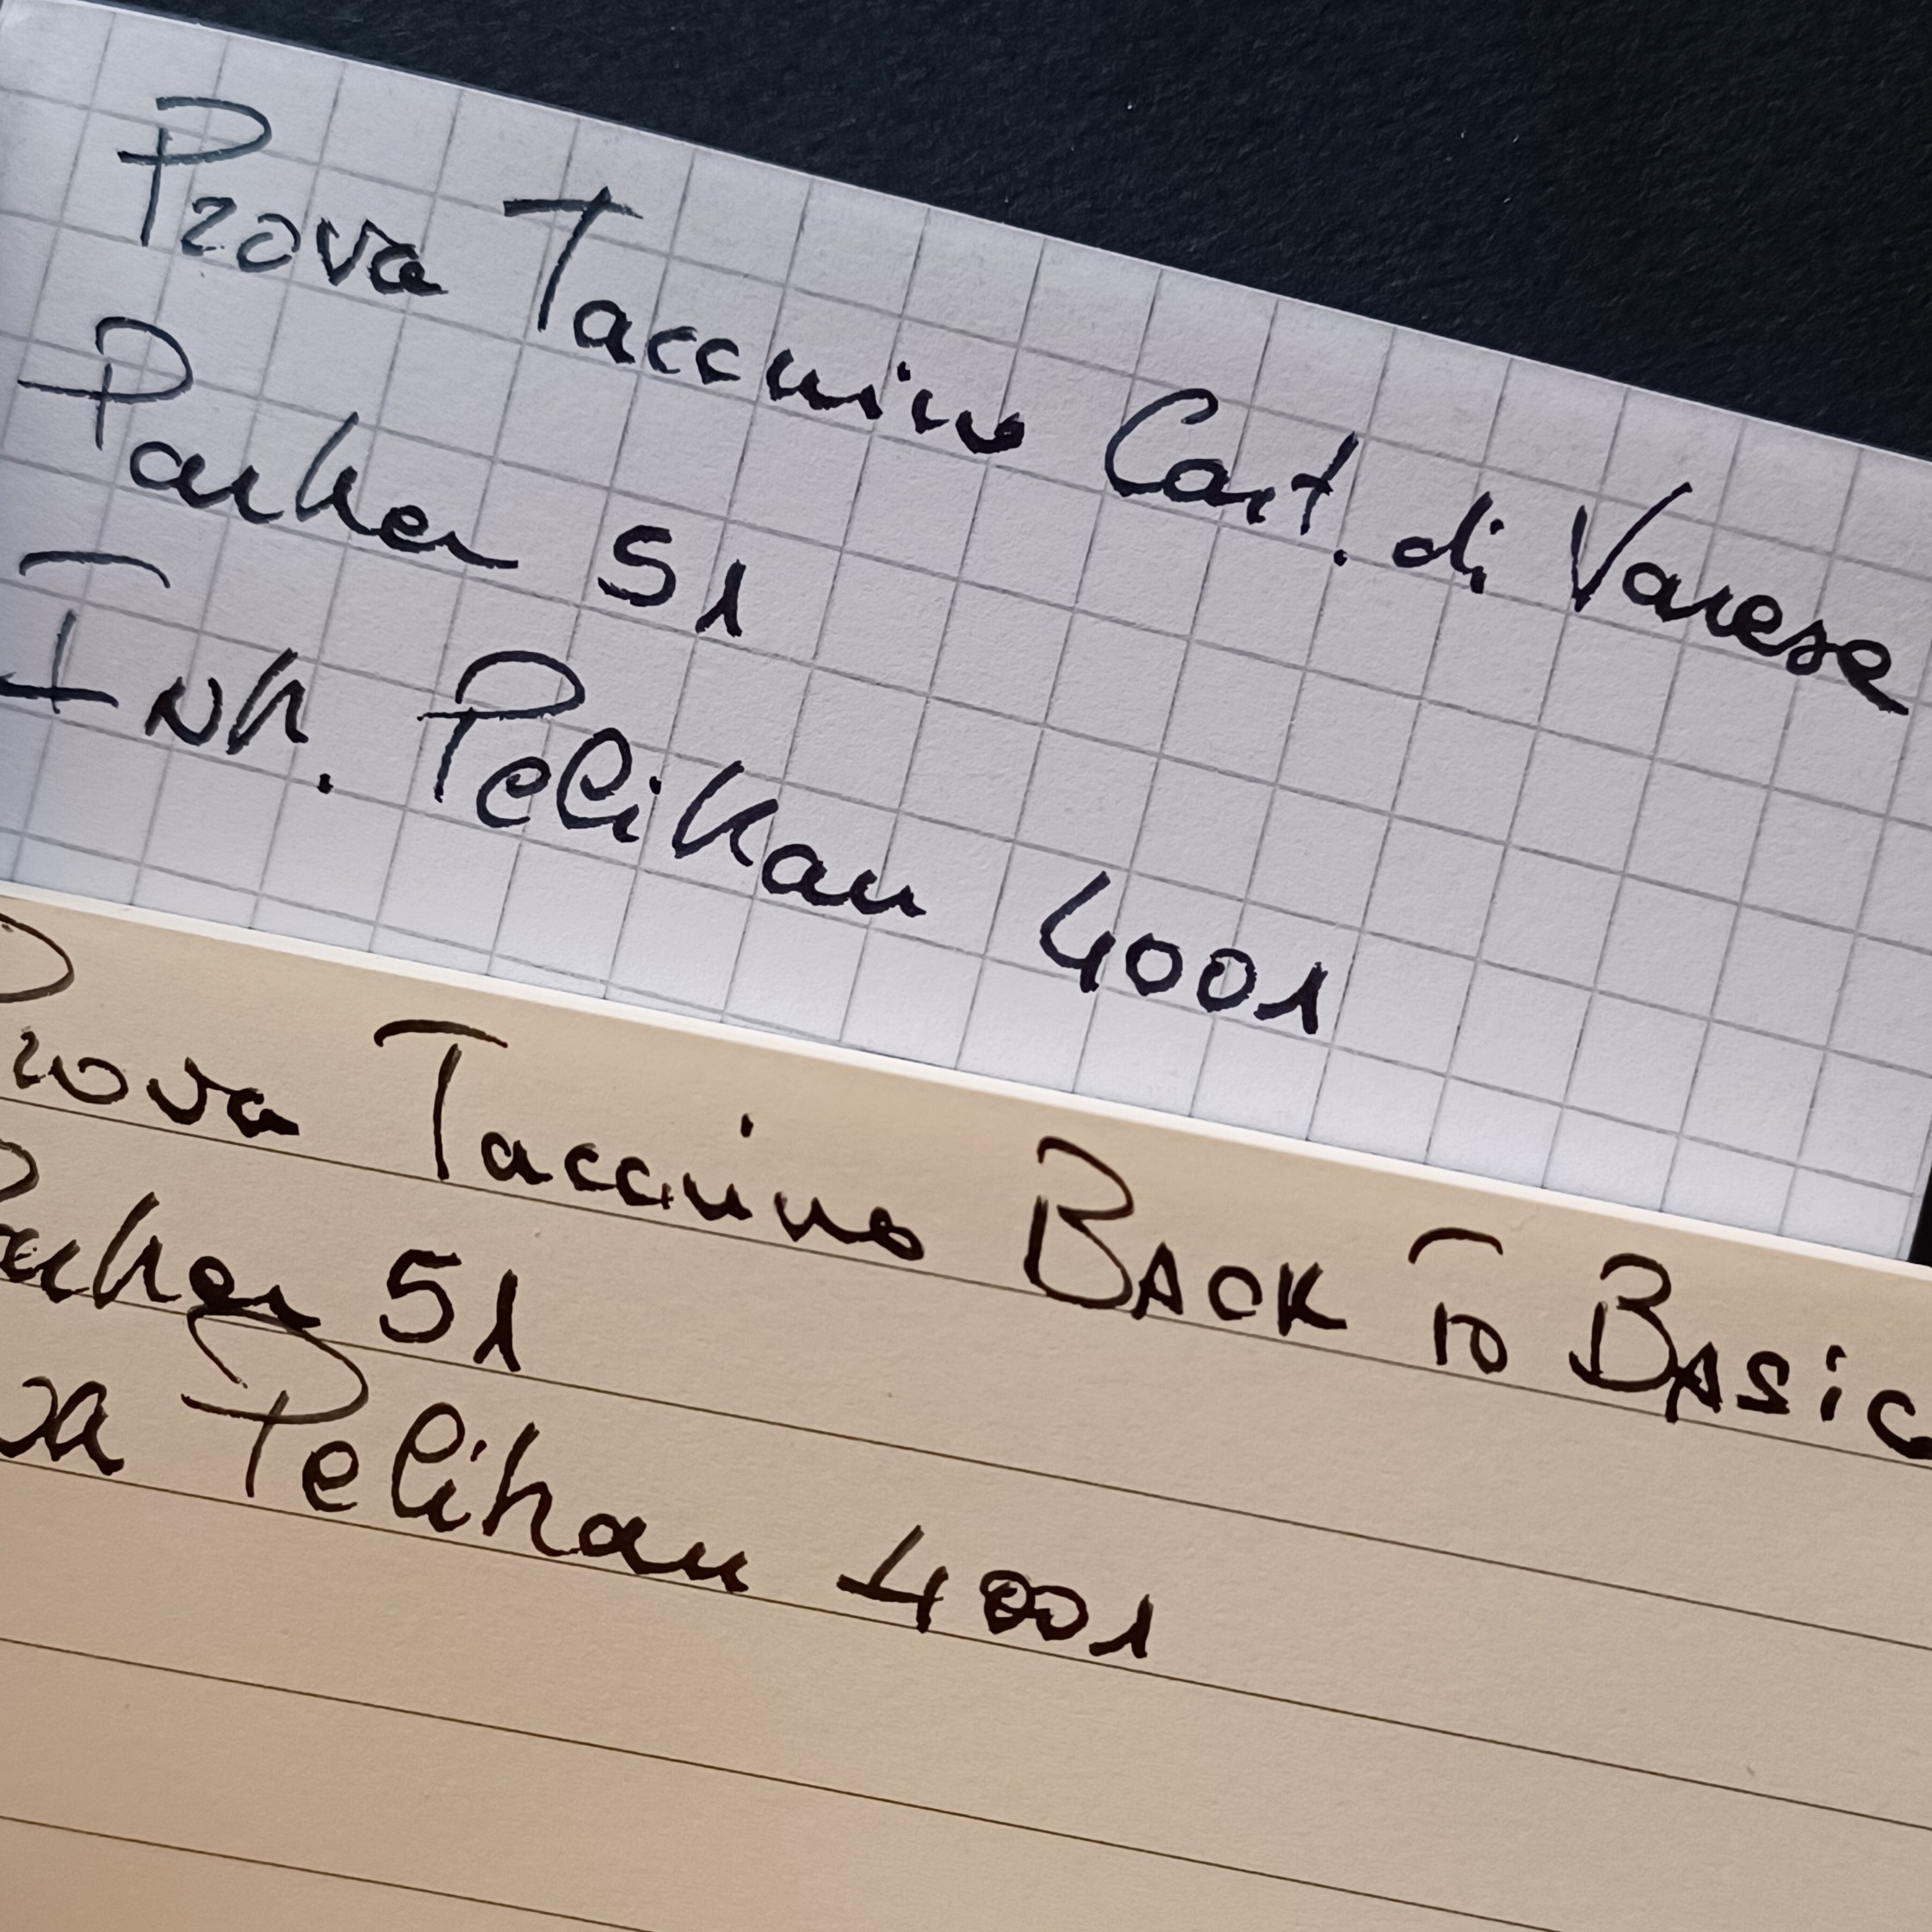 Prova Taccuino Cart. di Varese
Parker 51
Ink. Pelikan 4001
Prova Taccuino BACK TO BASIC
Parker 51
Pelikan 4001